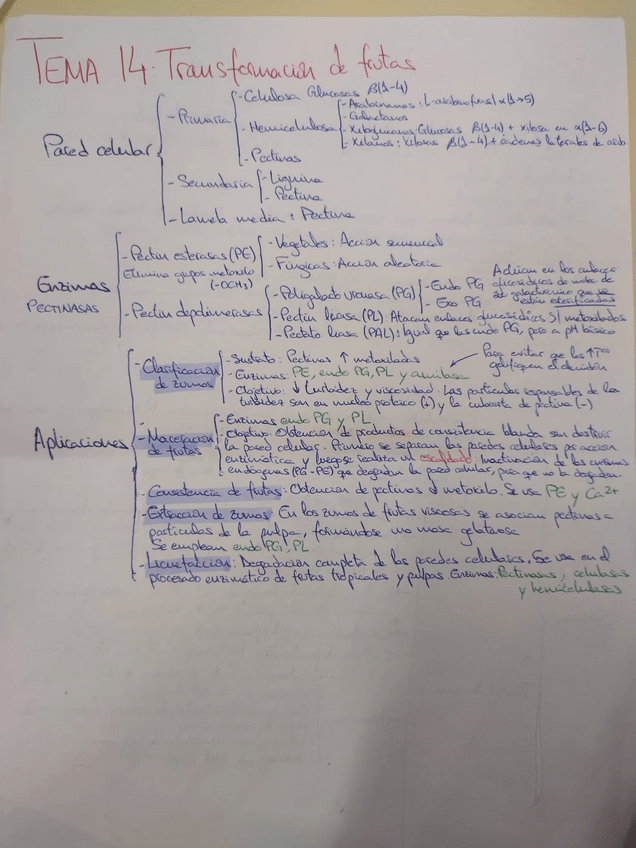 TEMA 14: Transformación de frutas
Pared celular
- Primaria
- Celulosa Glucosas β(1-4)
- Hemicelulosa
- Arabinanos: L-arabinofuras! α(1→5)
- Galactanos
- Xiloglucanos: Glucosas β(1-4) + xilosa en α(1-6)
- Xilanos: Xilosas β(1-4) + cadenas laterales de
- Pectinas
- Secundaria
- Lignina
- Pectina
- Lamela media: Pectina
Enzimas
PECTINASAS
- Pectin esterasas (PE)
Elimina grupos metoxilo
(-OCH₃)
- Vegetales: Acción secuencial
- Fúngicas: Acción aleatoria
- Pectin depolimerasas
- Poligalacturonasa (PG)
- Endo PG
- Exo PG
Actúan en los enlaces
glucosídicos de
galacturónico que
están esterificadas
- Pectin liasa (PL): Atacan enlaces glucosídicos S/ metoxilados
- Pectato liasa (PAL): Igual que las endo PG, pero a pH básico
Aplicaciones
- Clarificación
de zumos
- Sustrato: Pectinas ↑ metoxiladas
- Enzimas: PE, endo PG, PL y amilasa
Para evitar que las ↑Tª
gelifiquen el almidón
- Objetivo: ↓ turbidez y viscosidad. Las partículas responsables de la
turbidez son en núcleo proteico (+) y la cubierta de pectina (-)
- Maceración
de frutas
- Enzimas endo PG y PL
- Objetivo: Obtención de productos de consistencia blanda sin destruir
la pared celular. Primero se separan las paredes celulares por acción
enzimática y luego se realiza un escaldado. Inactivación de las enzimas
endógenas (PG-PE) que degradan la pared celular, para que no la degraden.
- Consistencia de frutas: Obtención de pectinas ↓ metoxilo. Se usa PE y Ca²⁺
- Extracción de zumos: En los zumos de frutas viscosas se asocian pectinas a
partículas de la pulpa, formándose una masa gelatinosa
Se emplean endo PG, PL
- Licuefacción: Degradación completa de las paredes celulares. Se usa en el
procesado enzimático de frutas tropicales y pulpas Enzimas: Pectinasas, celulasas
y hemicelulasas